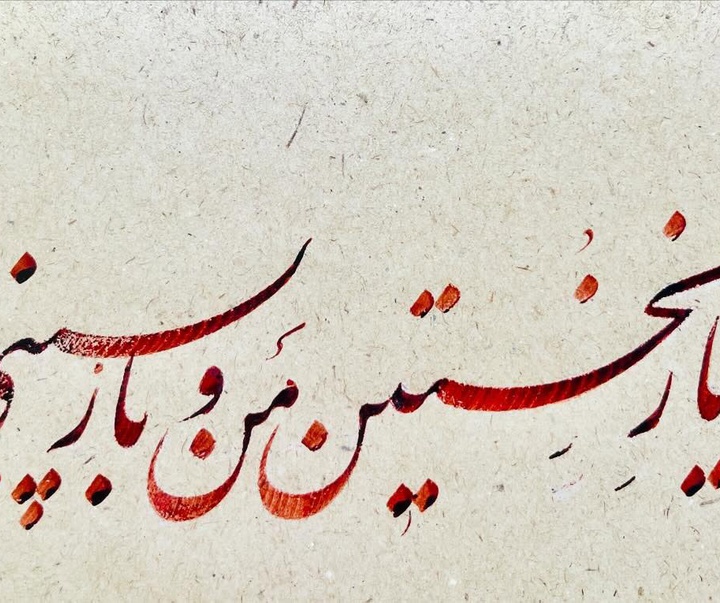 یار نخستین من و باز پسین